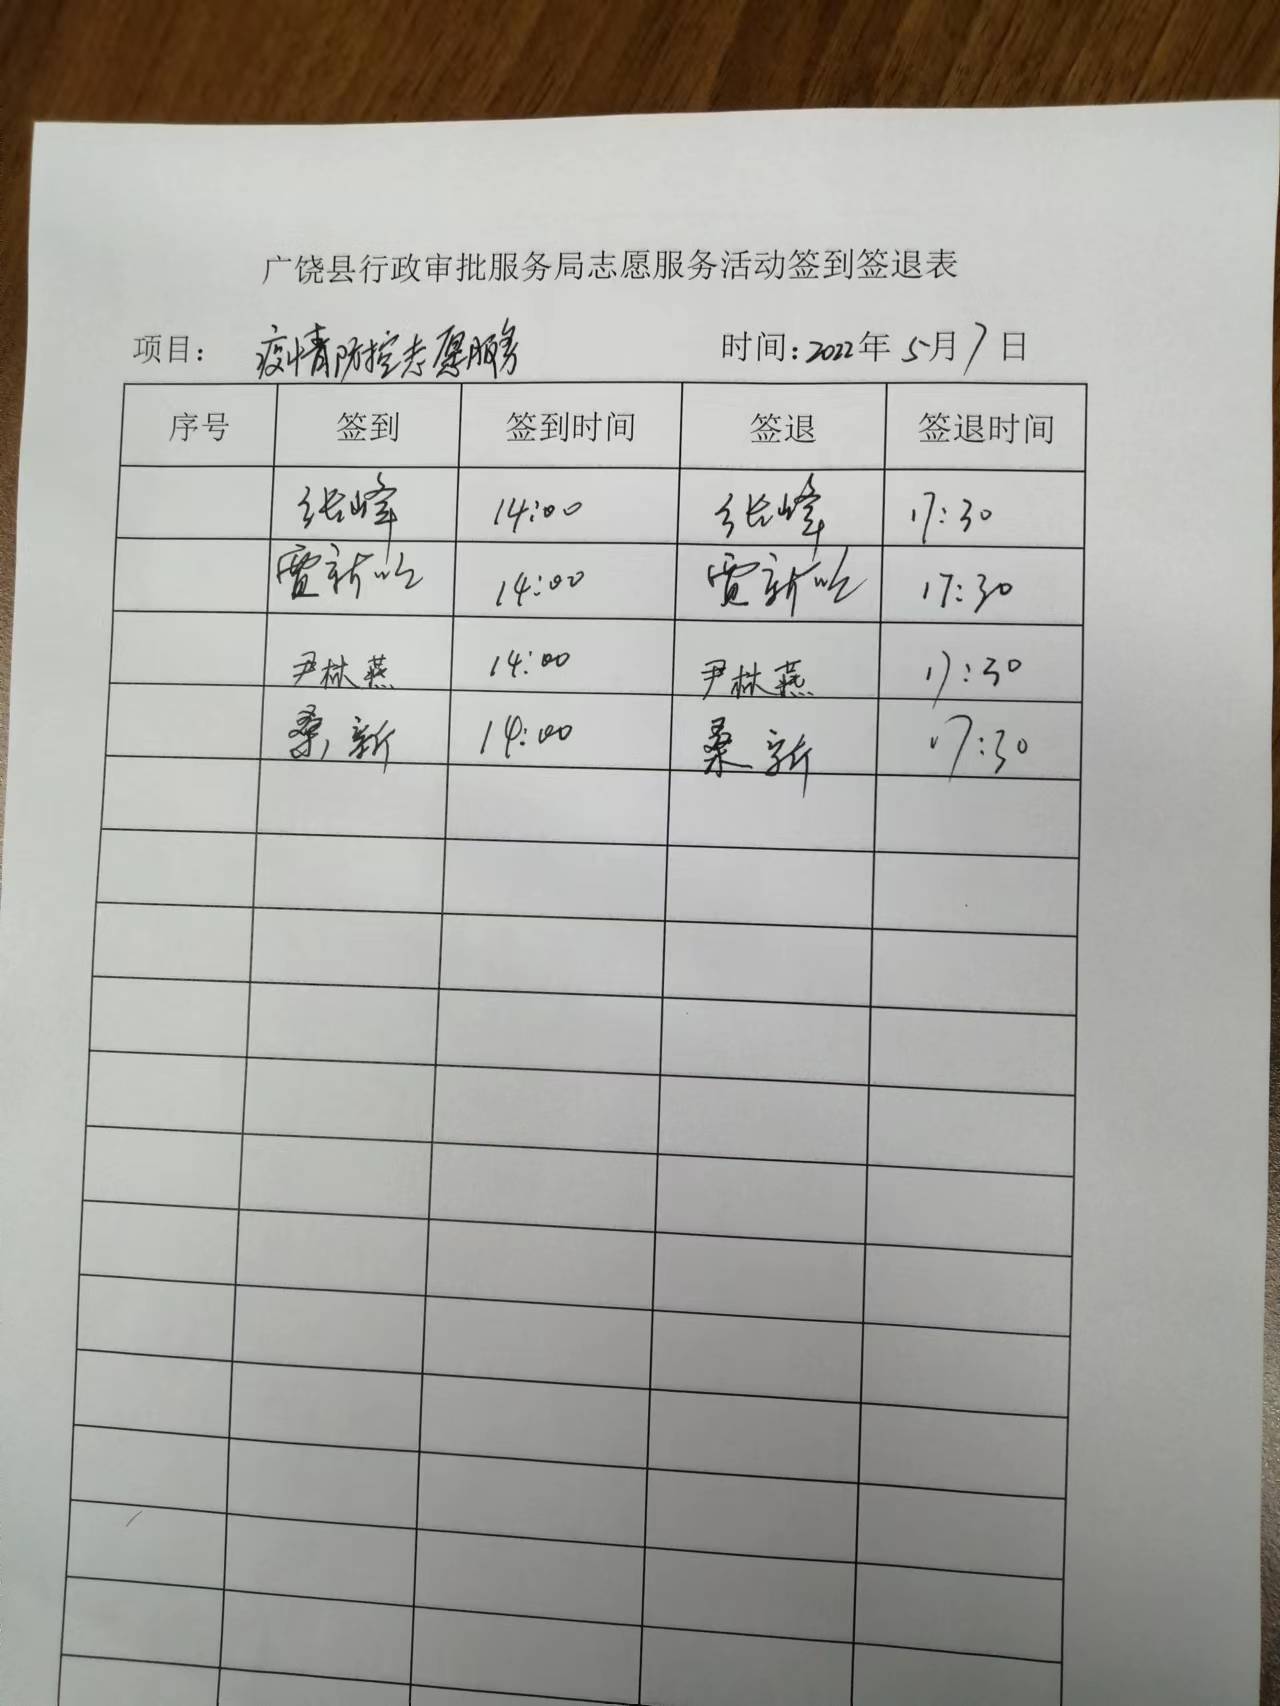 广饶县行政审批服务局志愿服务活动签到签退表
项目： 疫情防控志愿服务 时间：2022年5月7日
序号 签到 签到时间 签退 签退时间
张峰 14:00 张峰 17:30
贾新 14:00 贾新 17:30
尹林燕 14:00 尹林燕 17:30
桑新 14:00 桑新 17:30